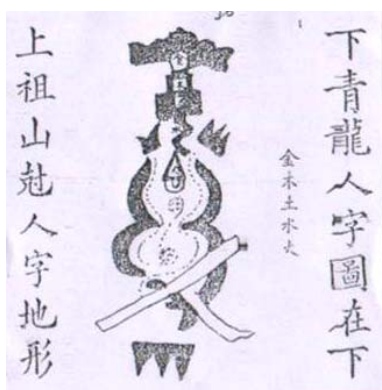 下青龍人字圖在下
金木土水火
上祖山尅人字地形